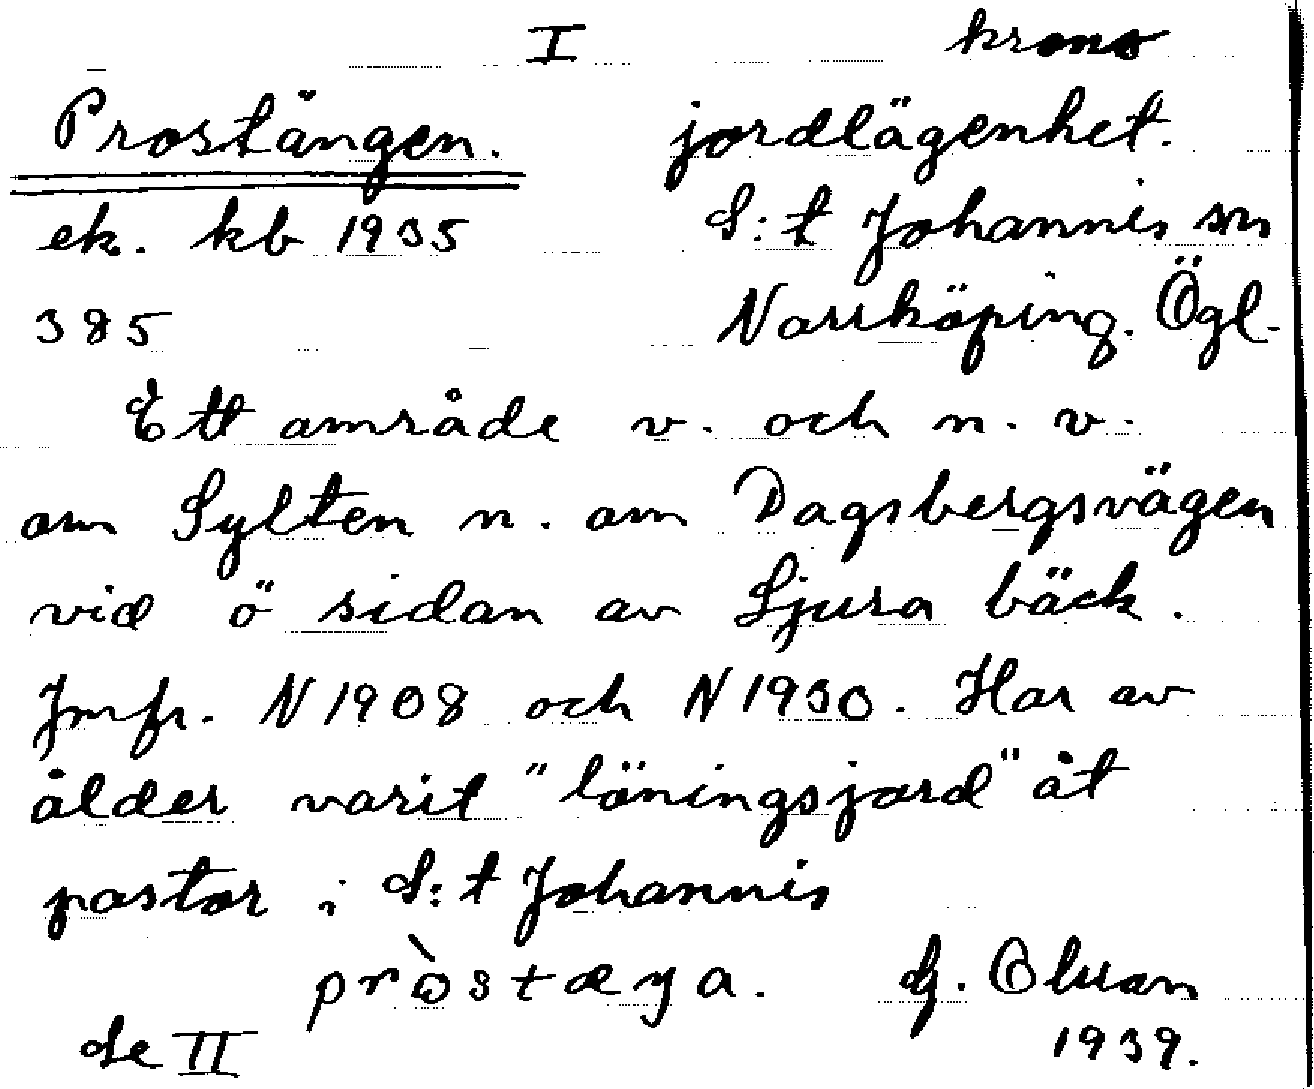 I krono
Prostängen. jordlägenhet.
ek. kb 1935 S:t Johannis sn
385 Norrköping. Ögl.
Ett område v. och n. v.
om Sylten n. om Dagsbergsvägen
vid ö sidan av Ljura bäck.
Jmfr. N 1908 och N 1930. Har av
ålder varit "löningsjord" åt
pastor i S:t Johannis
G. Olsson
Se II 1939.